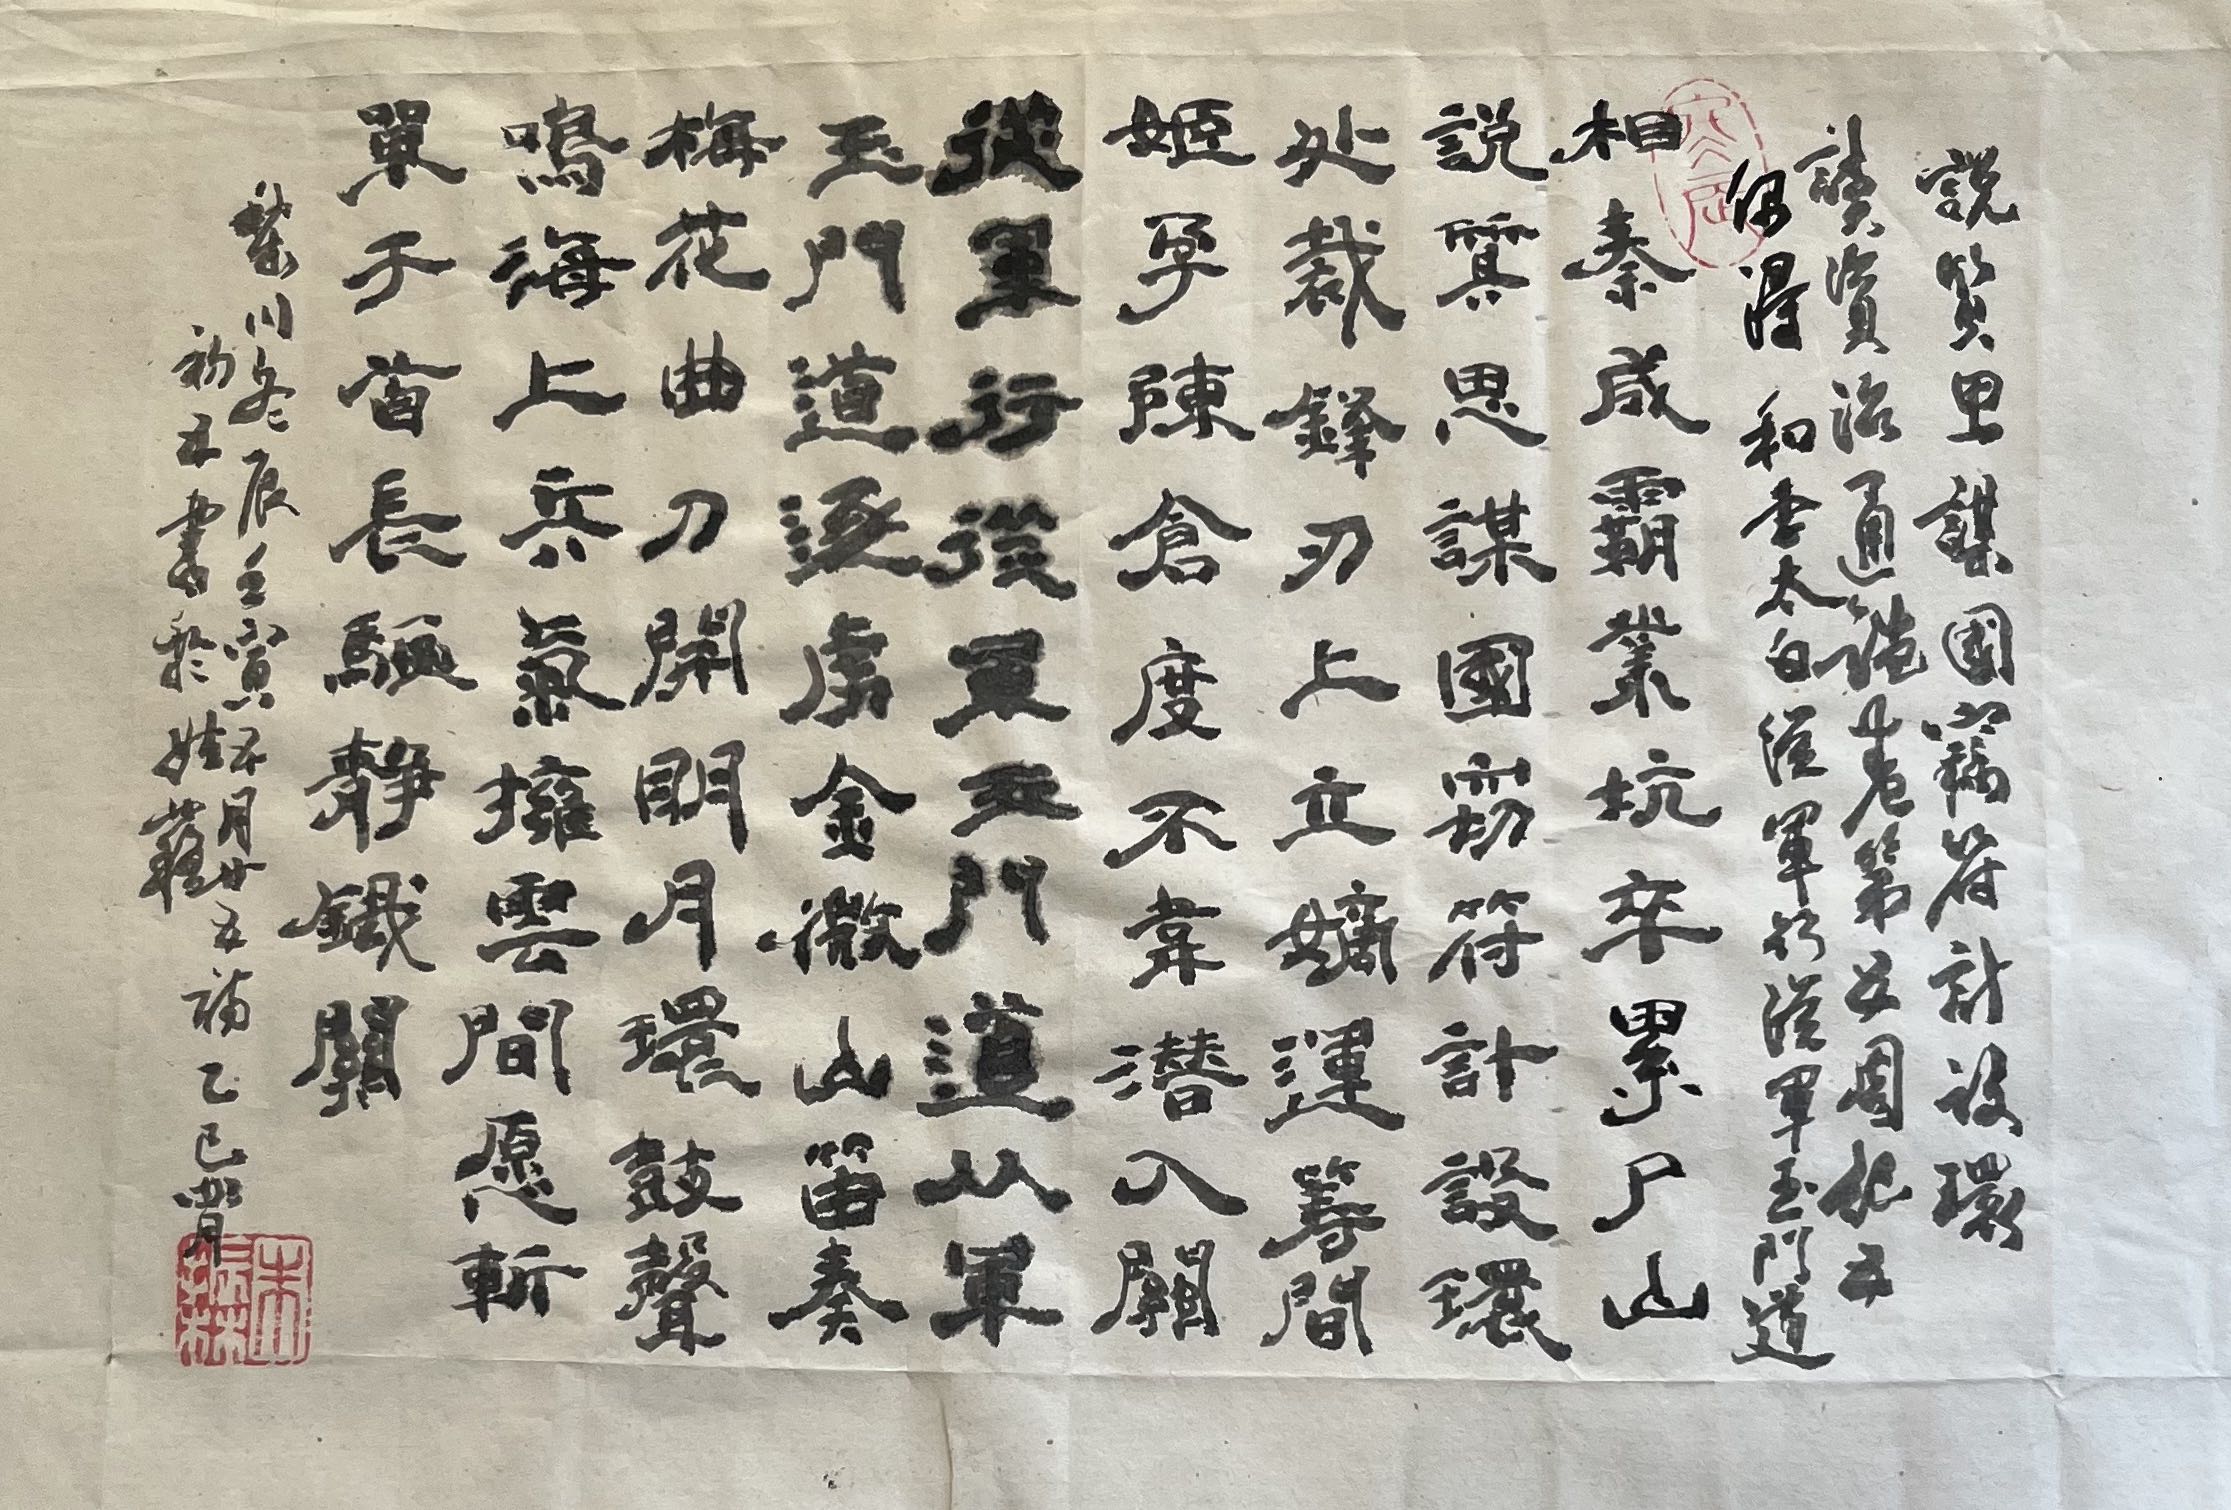 説質思謀國竊符計設環
讀資治通鑑卷第五周紀五
偶得 和李太白從軍行從軍玉門道
相秦成霸業坑卒累尸山
説質思謀國窃符計設環
处裁鋒刃上立嫡運筹間
姬孕陳倉度不韋潜入關
從軍行從軍玉門道从軍
玉門道逐虜金微山笛奏
梅花曲刀開明月環鼓聲
鳴海上兵氣擁雲間愿斬
單于首長驅静鐵關
辰壬寅五月廿五稿乙巳四月
初五書於